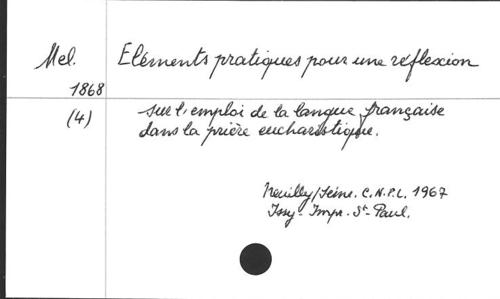 Mel. Eléments pratiques pour une réflexion
1868
(4) sur l'emploi de la langue française
dans la prière eucharistique.
Neuilly/Seine. C.N.P.L. 1967
Issy- Impr. St-Paul.